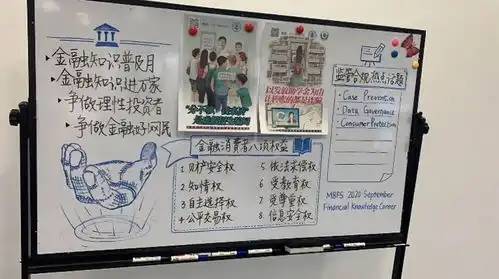 金融知识普及月
金融知识进万家
争做理性投资者
争做金融好网民
以发放助学金为由
让转账的都是诈骗
监管合规热点话题
Case Prevention
Data Governance
Consumer Protection
金融消费者八项权益
1 财产安全权
2 知情权
3 自主选择权
4 公平交易权
5 依法求偿权
6 受教育权
7 受尊重权
8 信息安全权
MBFS 2020 September
Financial Knowledge Corner